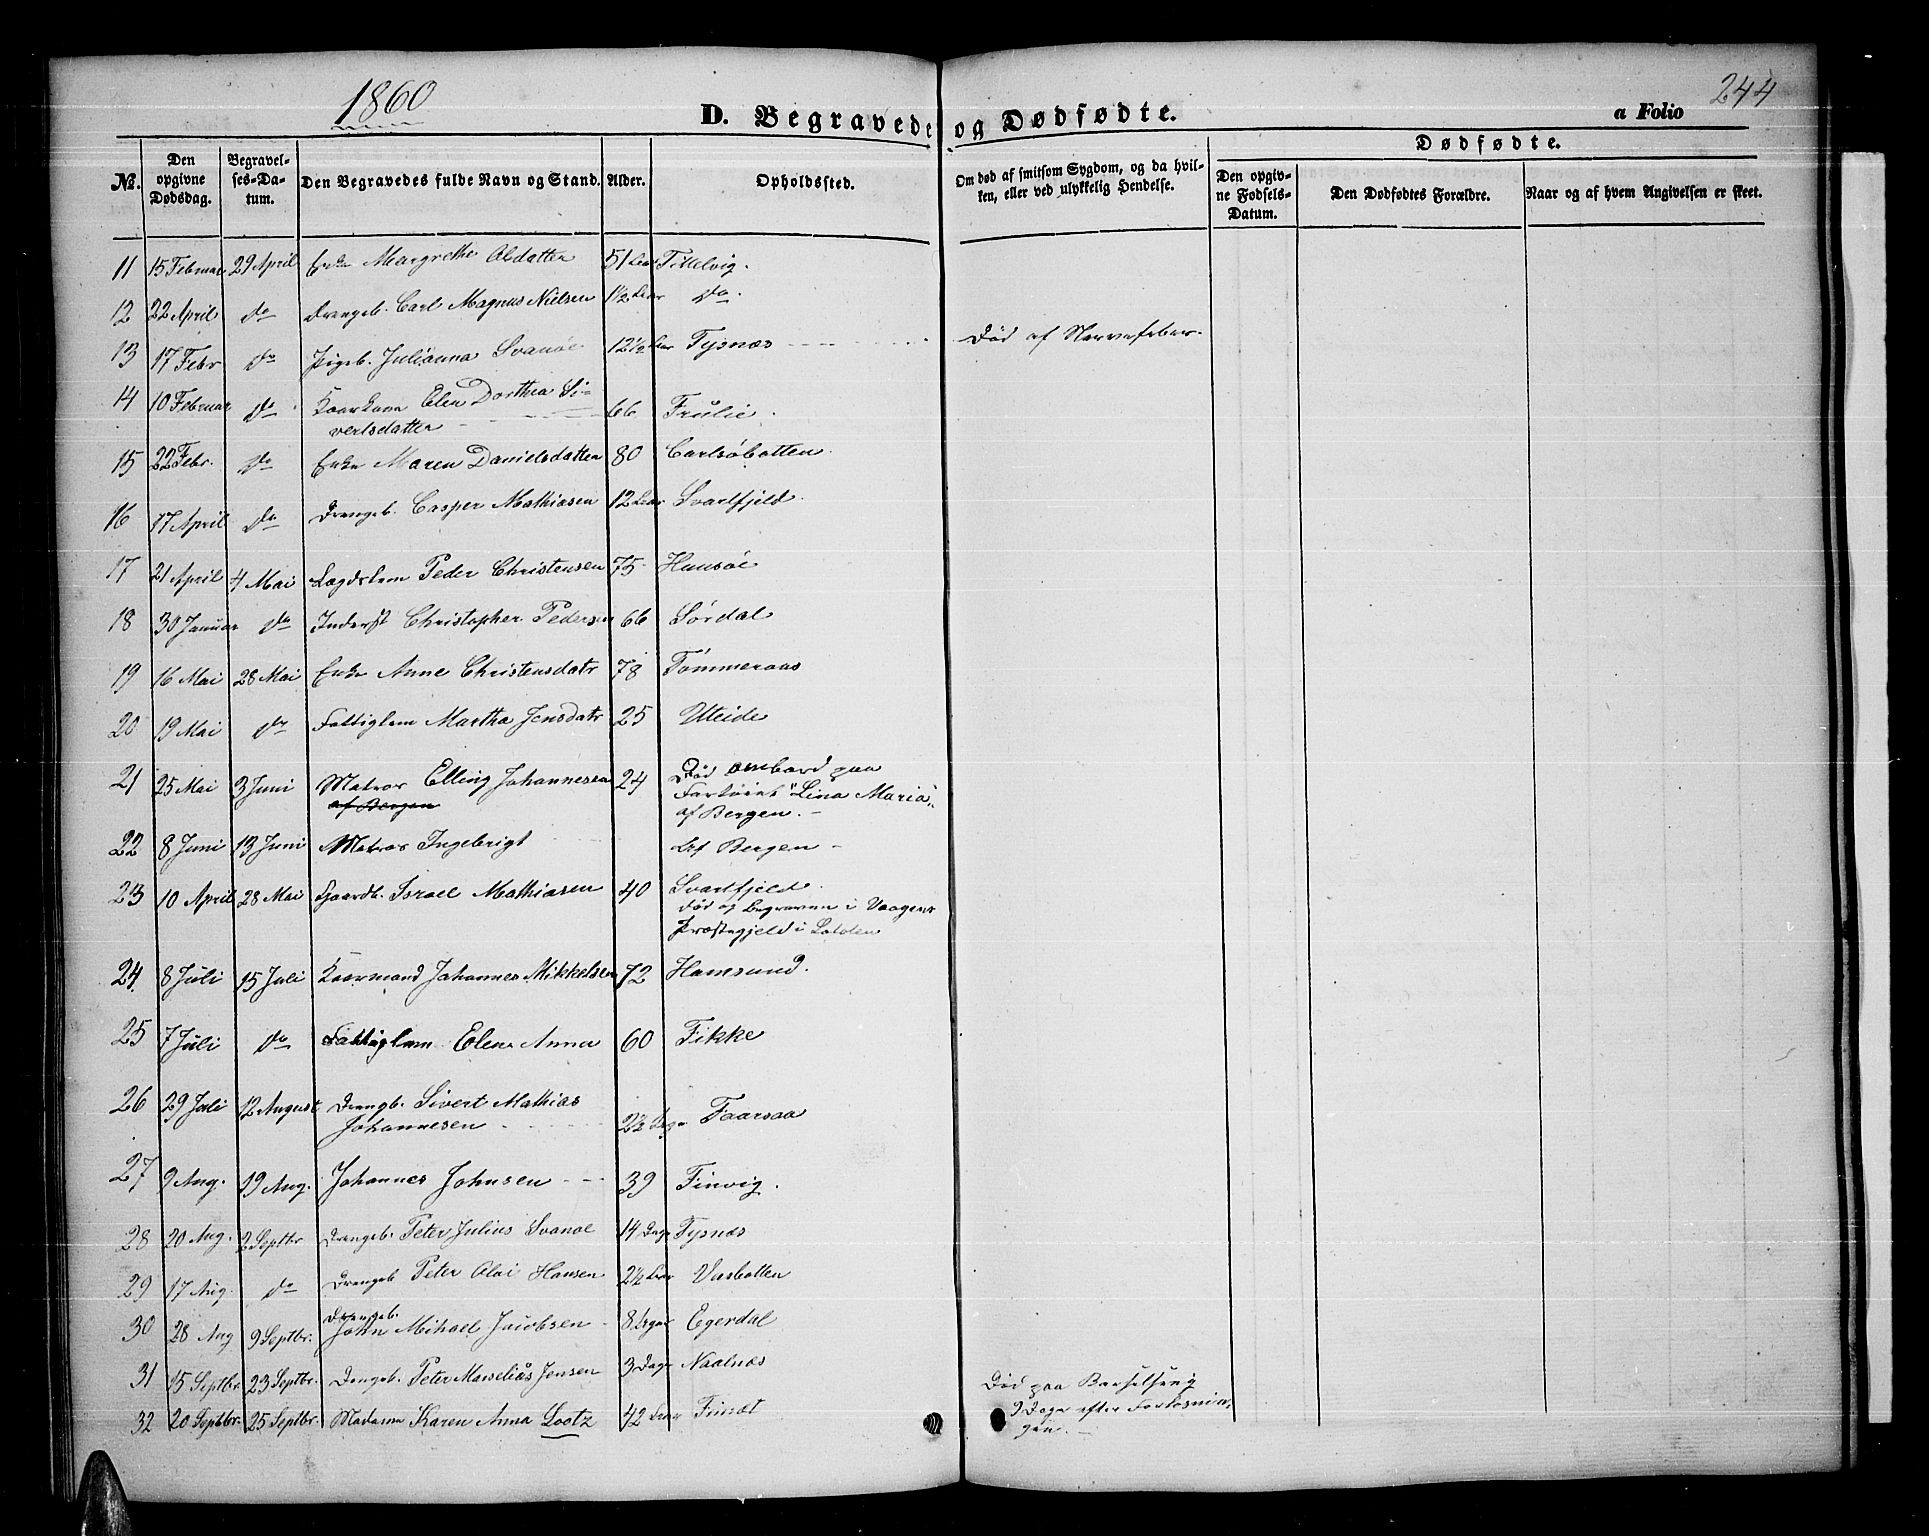 1860
244
D. Begravede og Dødfødte.
a Folio
No.
Den opgivne Dødsdag.
Begravelses-Datum.
Den Begravedes fulde Navn og Stand.
Alder.
Opholdssted.
Om død af smitsom Sygdom, og da hvilken, eller ved ulykkelig Hendelse.
Dødfødte.
Den opgivne Fødsels-Datum.
Den Dødfødtes Forældre.
Naar og af hvem Angivelsen er skeet.
11 15 Februar 29 April Enke Margrethe Olsdatter 51 Tittelvig.
12 22 April do Drengeb. Carl Magnus Nielsen 1½ do.
13 17 Febr do Pigeb. Julianna Svanøe 12½ Tysnæs Død af Nervefeber.
14 10 Februar do Kaarkone Elen Dorthea Si-
vertsdatter 66 Frulie.
15 22 Febr. do Enke Maren Danielsdatter 80 Carlsøbotten.
16 17 April do Drengeb. Casper Mathiasen 12 Svartfjeld.
17 21 April 4 Mai Lægdslem Peder Christensen 75 Hunsøe
18 30 Januar do Inderst Christopher Pedersen 66 Sørdal
19 16 Mai 28 Mai Enke Anne Christensdatr 78 Tømmeraas
20 19 Mai do Fattiglem Martha Jensdatr 25 Uteide
21 25 Mai 3 Juni Matros Elling Johannesen 24 Død ombord paa
af Bergen Fartøiet "Lina Maria"
af Bergen.
22 8 Juni 13 Juni Matros Ingebrigt Af Bergen
23 10 April 28 Mai Gaardb. Israel Mathiasen 40 Svartfjeld.
Død og Begraven i Vaagens
Præstegjeld i Lofoten
24 8 Juli 15 Juli Kaarmand Johannes Mikkelsen 72 Hamsund.
25 7 Juli do Fattiglem Elen Anna 60 Fikke
26 29 Juli 12 August Drengb. Sivert Mathias
Johannesen 2½ Faarsaa
27 9 Aug. 19 Aug. Johannes Johnsen 39 Finvig.
28 20 Aug. 2 Septbr Drengeb. Peter Julius Svanøe 14 Dage Tysnæs
29 17 Aug. do Drengeb Peter Olai Hansen 2½ Vasbotten
30 28 Aug 9 Septbr. Drengeb.
John Mihael Jacobsen 8 Egerdal
31 15 Septbr 23 Septbr. Drengeb. Peter Marselius Jensen 3 Dage Naalnæs
32 20 Septbr. 25 Septbr. Madame Karen Anna Lootz 42 Finsæt Død paa Barselseng
9 Dage efter Forløsnin-
gen.